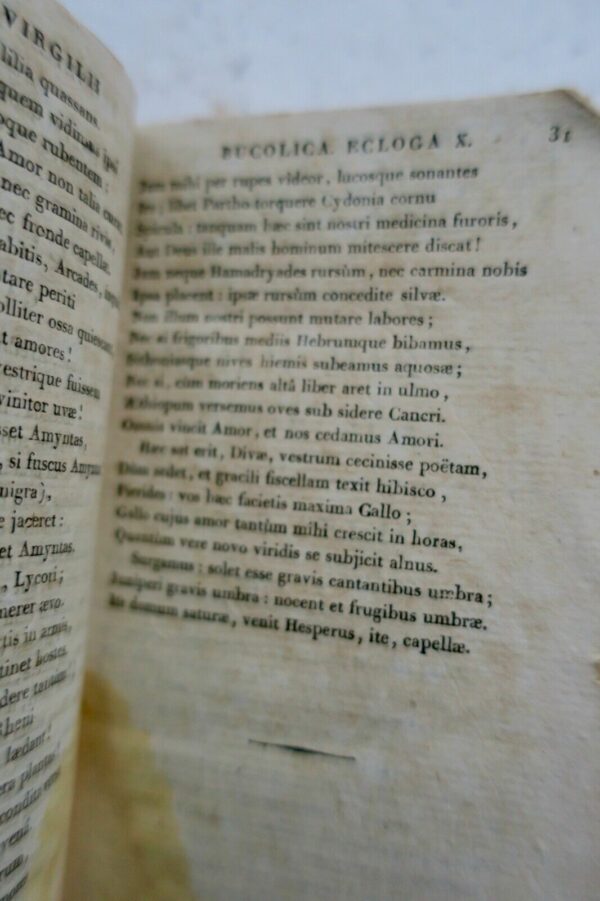 VIRGILII
lilia quassans.
quem vidimus ipsi
que rubentem:
Amor non talia curat
nec gramina rivis,
nec fronde capellæ.
abitis, Arcades,
tare periti
olliter ossa quiescant
t amores!
estrique fuissem
vinitor uvæ!
sset Amyntas,
, si fuscus Amyntas
nigra),
e jaceret:
et Amyntas.
, Lycori;
merer ævo.
tis in armis,
tinet hostes.
dere tantum
Rheni
lædant!
era plantas!
condita
rum,
BUCOLICA. ECLOGA X. 31
Jam mihi per rupes videor, lucosque sonantes
Ire; libet Partho torquere Cydonia cornu
Spicula: tanquam hæc sint nostri medicina furoris,
Aut Deus ille malis hominum mitescere discat!
Jam neque Hamadryades rursùm, nec carmina nobis
Ipsa placent: ipsæ rursùm concedite silvæ.
Non illum nostri possunt mutare labores;
Nec si frigoribus mediis Hebrumque bibamus,
Sithoniasque nives hiemis subeamus aquosæ;
Nec si, cùm moriens altâ liber aret in ulmo,
Æthiopum versemus oves sub sidere Cancri.
Omnia vincit Amor, et nos cedamus Amori.
Hæc sat erit, Divæ, vestrum cecinisse poëtam,
Dùm sedet, et gracili fiscellam texit hibisco,
Pierides: vos hæc facietis maxima Gallo;
Gallo cujus amor tantùm mihi crescit in horas,
Quantùm vere novo viridis se subjicit alnus.
Surgamus: solet esse gravis cantantibus umbra;
Juniperi gravis umbra: nocent et frugibus umbræ.
Ite domum saturæ, venit Hesperus, ite, capellæ.